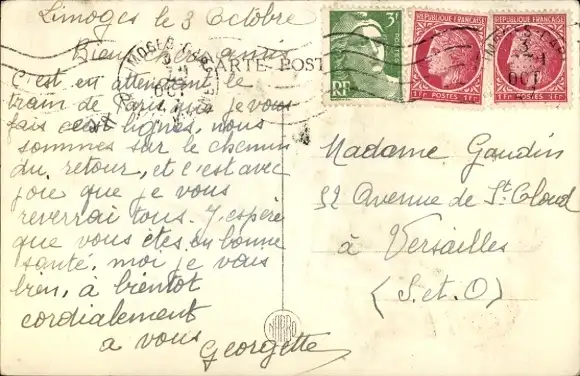 Limoges le 3 Octobre
Bien chers amis
CARTE POSTALE
C'est en attendant le
train de Paris que je vous
fais ces lignes, nous
sommes sur le chemin
du retour, et c'est avec
joie que je vous
reverrai tous. J'espère
que vous êtes en bonne
santé, moi je vais
bien, à bientôt
cordialement
à vous
Georgette
3F
RF
REPUBLIQUE FRANÇAISE
1 Fr POSTES 1 Fr
REPUBLIQUE FRANÇAISE
1 Fr POSTES 1 Fr
LIMOGES GARE
3
OCT
Madame Gaudin
32 Avenue de St Cloud
à Versailles
(S. et. O)